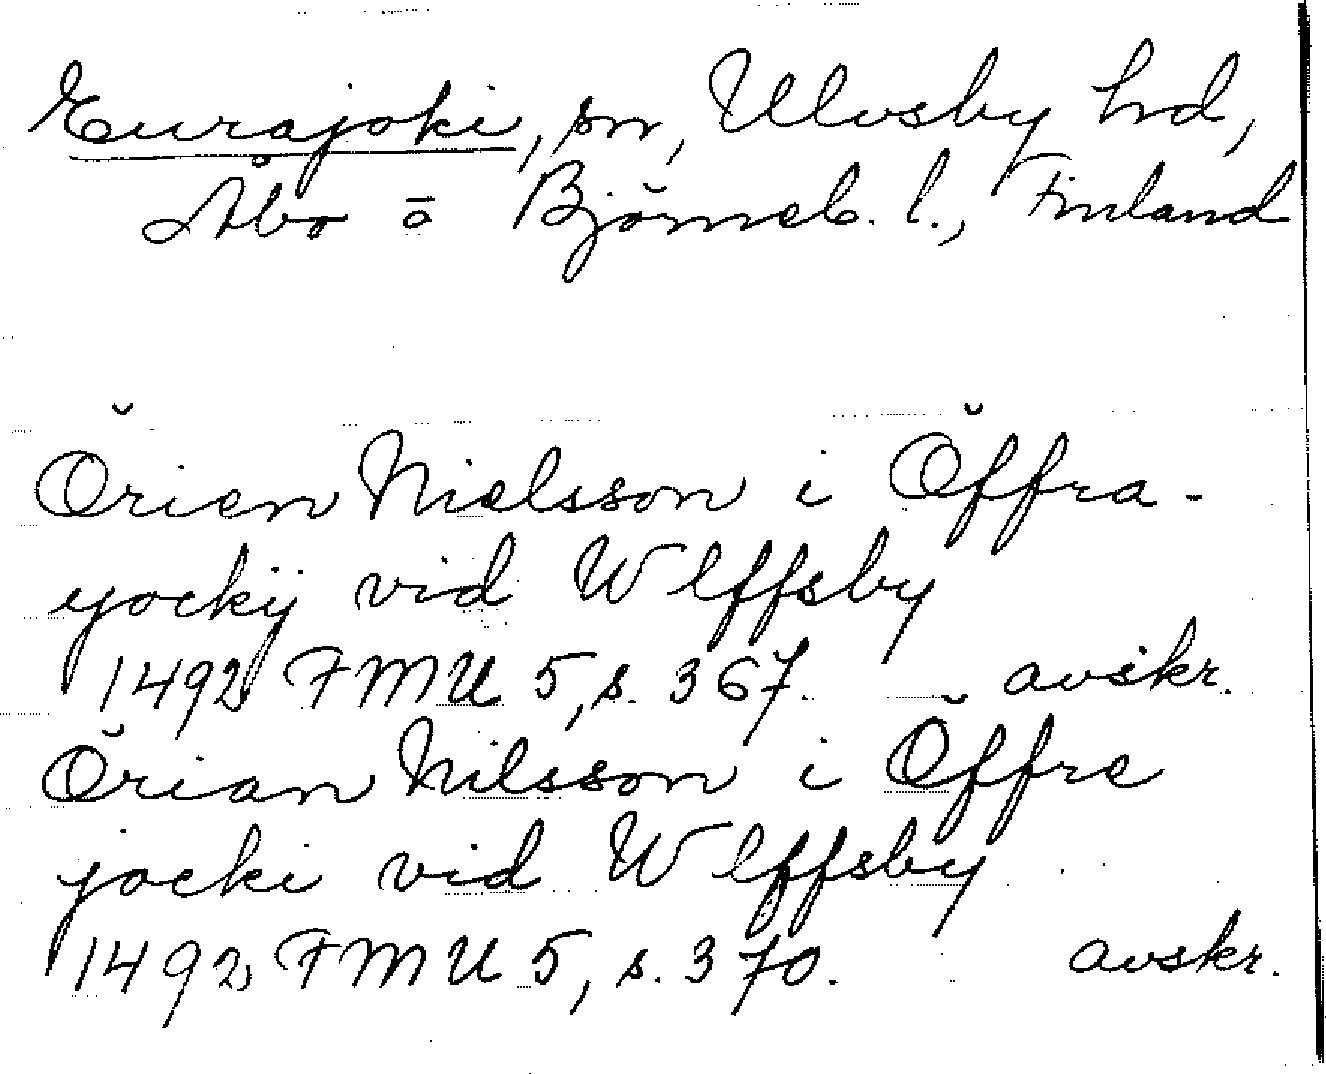 Eurajoki, sn, Ulvsby hd,
Åbo o Björneb. l., Finland
Örien Nielsson i Öffra-
yockij vid Wlffsby
1492 FMU 5, s. 367. avskr.
Örian Nilsson i Öffre
jocki vid Wlffsby
1492 FMU 5, s. 370. avskr.